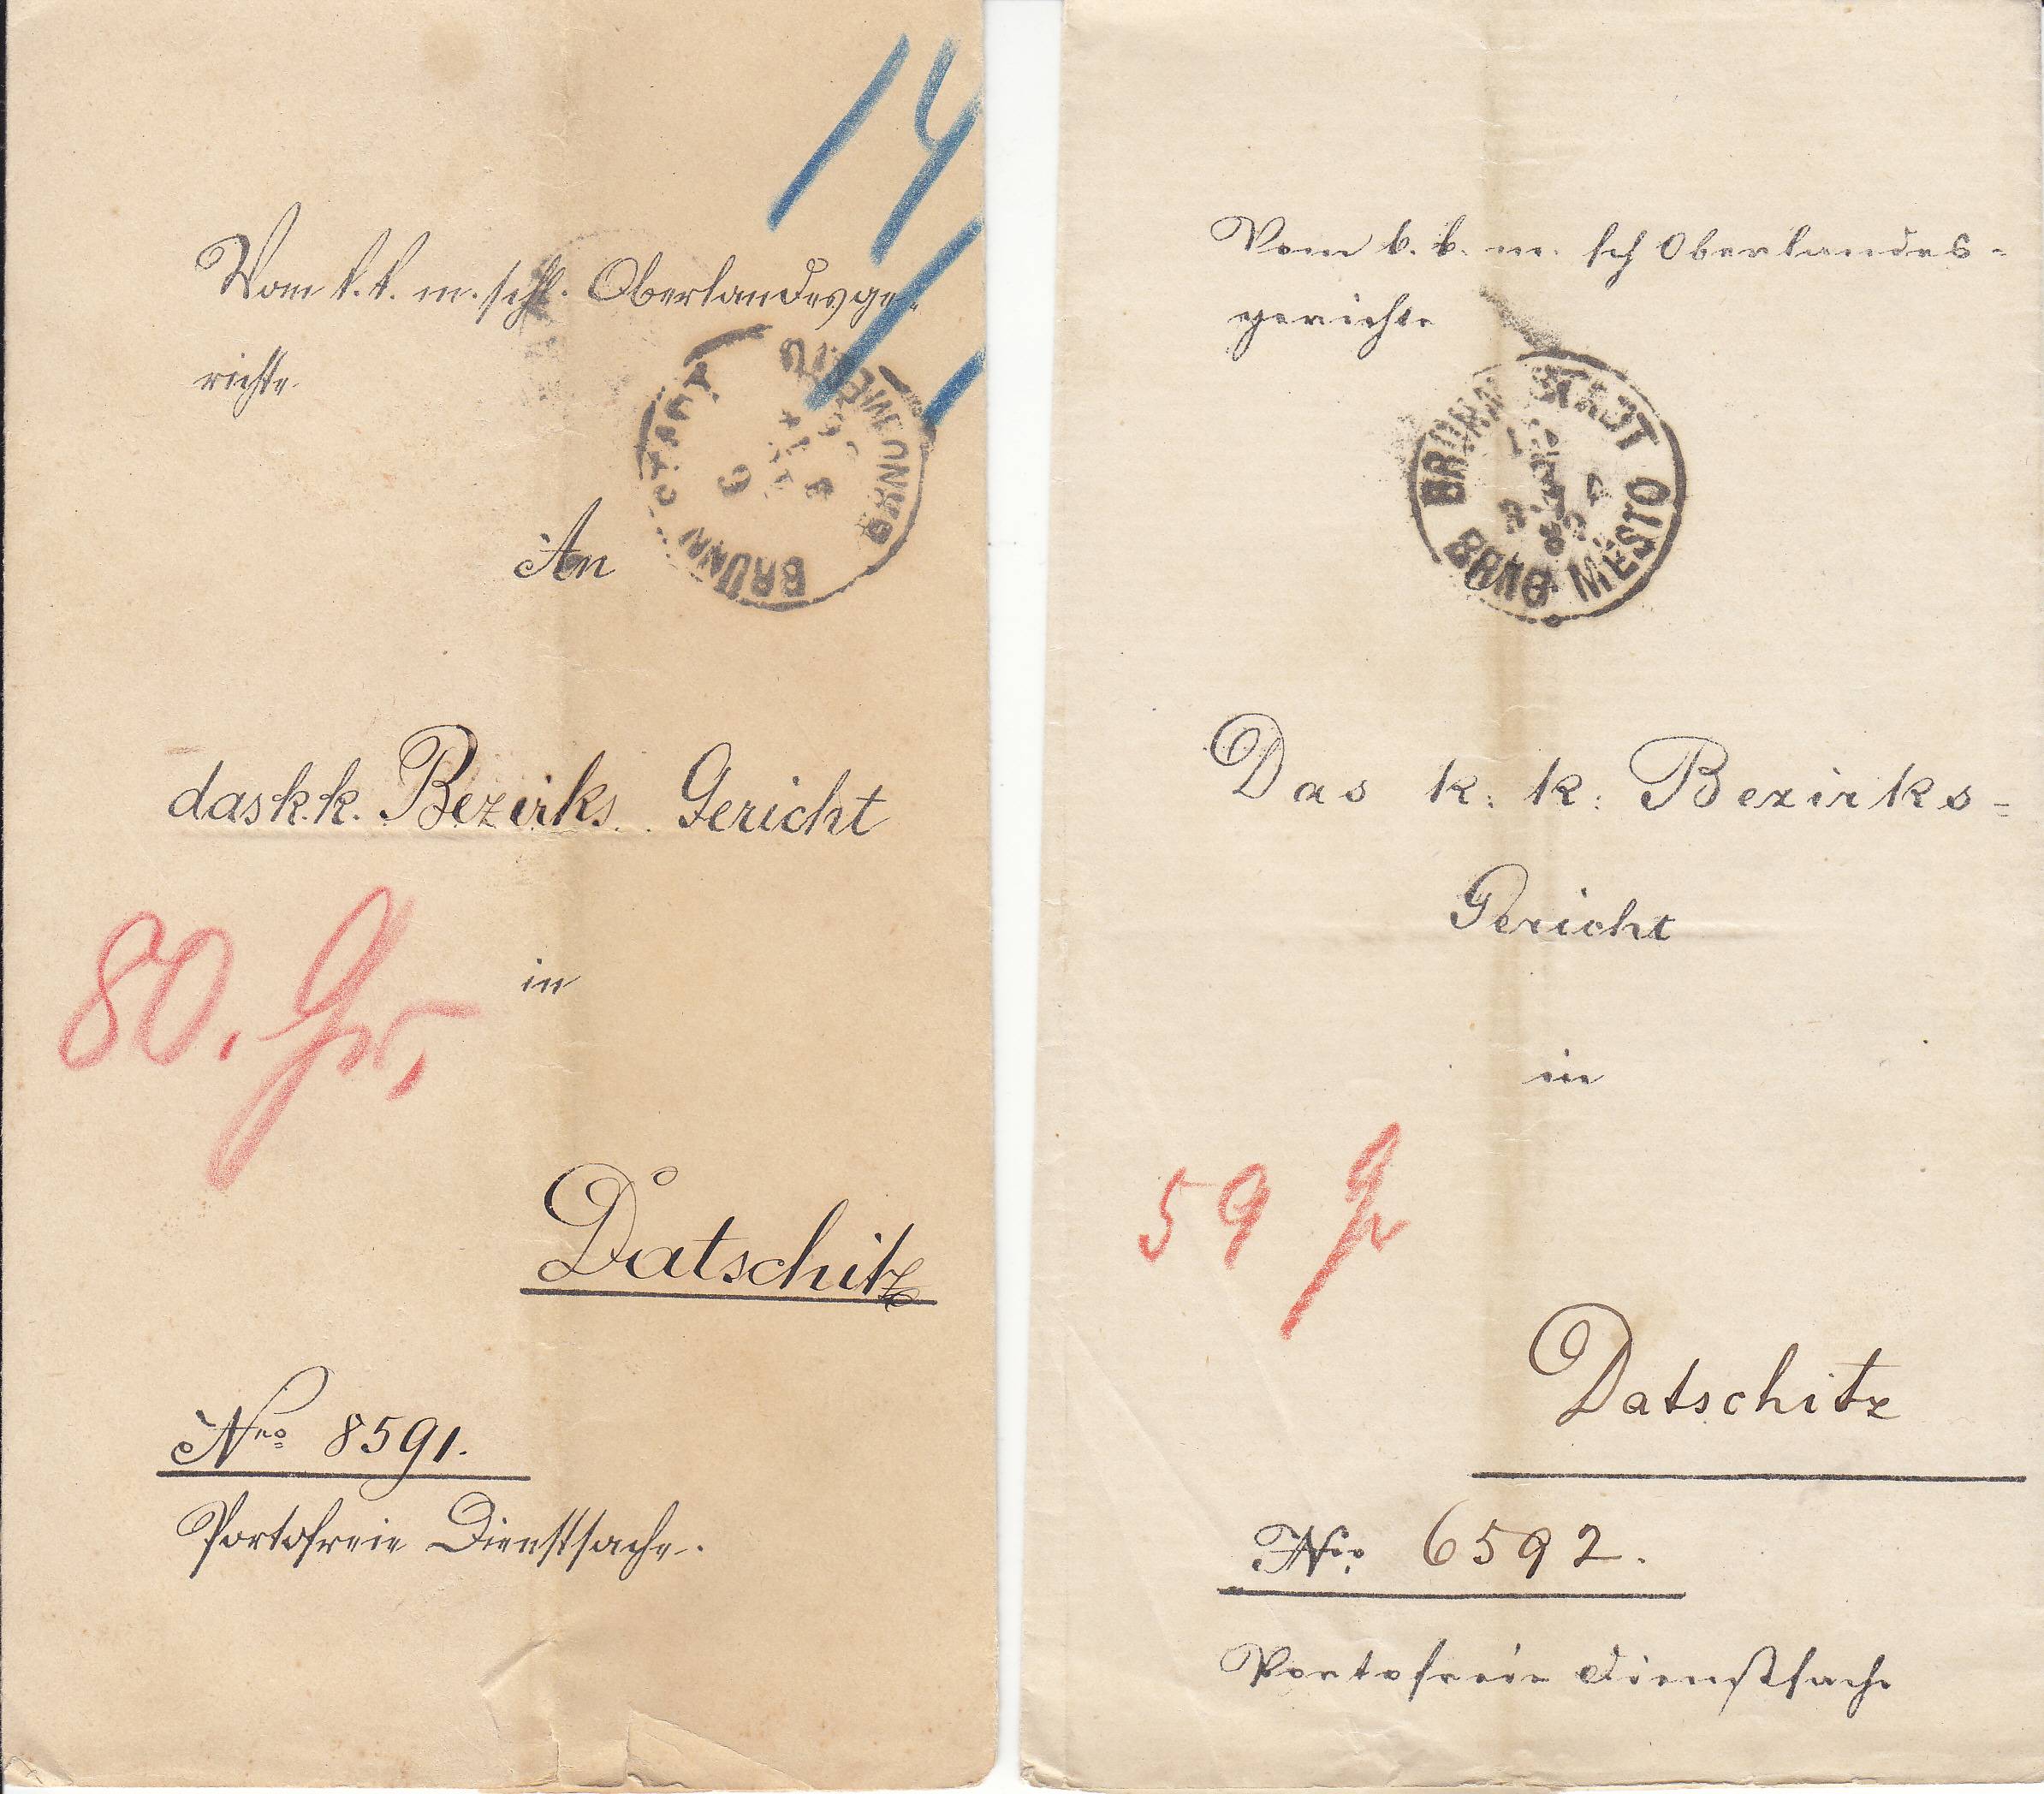 14
Vom k. k. m. schl. Oberlandesge-
richte
BRÜNN STADT
BRNO MĚSTO
An
das k. k. Bezirks Gericht
80. Gr.
in
Datschitz
Nro 8591.
Portofreie Dienstsache.
Vom k. k. m. sch Oberlandes-
gerichte
BRÜNN STADT
BRNO MĚSTO
Das k. k. Bezirks-
Gericht
in
59 gr
Datschitz
Nro 6592.
Portofreie Dienstsache